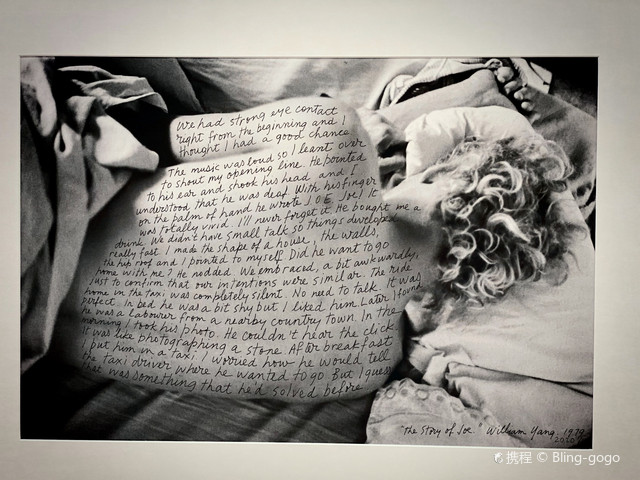 We had strong eye contact
right from the beginning and I
thought I had a good chance
The music was loud so I leant over
to shout my opening line. He pointed
to his ear and shook his head and I
understood that he was deaf. With his finger
on the palm of hand he wrote J O E, Joe! It
was totally vivid. I'll never forget it. He bought me a
drink. We didn't have small talk so things developed
really fast. I made the shape of a house, the walls,
the hip roof and I pointed to myself. Did he want to go
home with me? He nodded. We embraced, a bit awkwardly,
just to confirm that our intentions were similar. The ride
home in the taxi was completely silent. No need to talk. It was
perfect. In bed he was a bit shy but I liked him. Later I found
he was a labourer from a nearby country town. In the
morning I took his photo. He couldn't hear the click.
It was like photographing a stone. After breakfast
I put him in a taxi. I worried how he would tell
the taxi driver where he wanted to go. But I guess
that was something that he'd solved before.
"The Story of Joe." William Yang. 1979
携程 © Bling-gogo